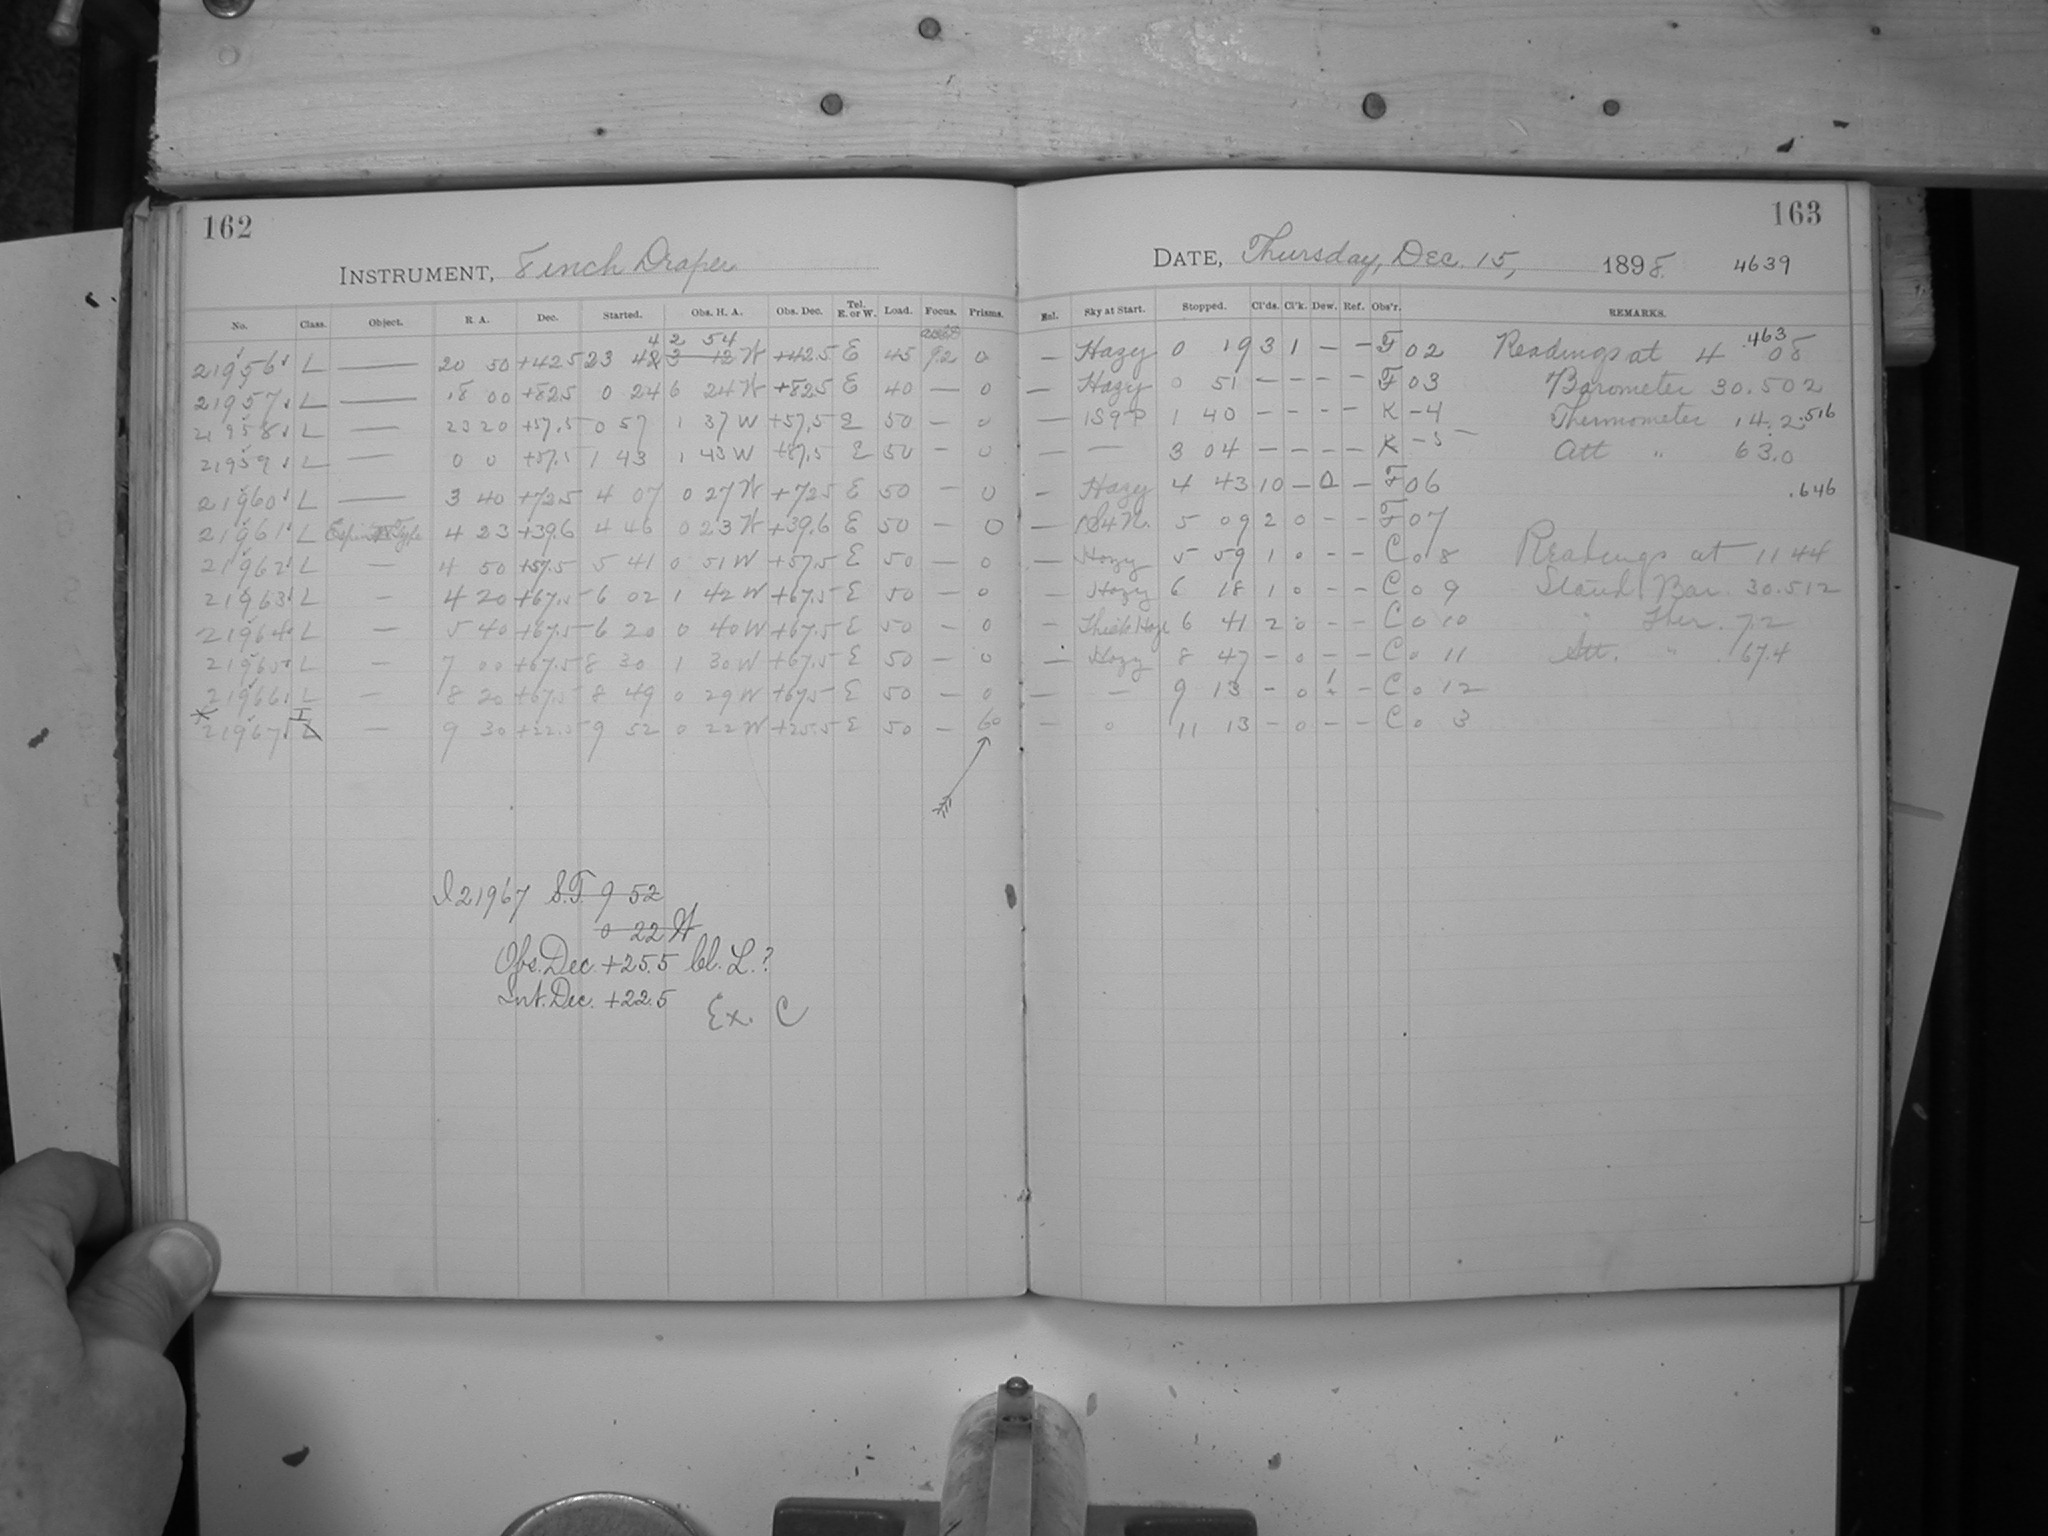 162
INSTRUMENT, 8 inch Draper
No. Class. Object. R. A. Dec. Started. Obs. H. A. Obs. Dec. Tel. E. or W. Load. Focus. Prisms.
4 2 54
21956 L — 20 50 +42.5 23 48 3 12 W +42.5 E 45 9.2 0
21957 L — 18 00 +82.5 0 24 6 24 W +82.5 E 40 — 0
21958 L — 23 20 +57.5 0 57 1 37 W +57.5 E 50 — 0
21959 L — 0 0 +57.5 1 43 1 43 W +57.5 E 50 — 0
21960 L — 3 40 +72.5 4 07 0 27 W +72.5 E 50 — 0
21961 L 4 23 +39.6 4 46 0 23 W +39.6 E 50 — 0
21962 L — 4 50 +57.5 5 41 0 51 W +57.5 E 50 — 0
21963 L — 4 20 +67.5 6 02 1 42 W +67.5 E 50 — 0
21964 L — 5 40 +67.5 6 20 0 40 W +67.5 E 50 — 0
21965 L — 7 00 +67.5 8 30 1 30 W +67.5 E 50 — 0
21966 L — 8 20 +67.5 8 49 0 29 W +67.5 E 50 — 0
I
21967 L — 9 30 +22.5 9 52 0 22 W +25.5 E 50 — 60
I 21967 S.T. 9 52
0 22 W
Obs. Dec. +25.5 cl. L.?
Int. Dec. +22.5
Ex. C
163
DATE, Thursday, Dec. 15, 1898. 4639
Enl. Sky at Start. Stopped. Cl'ds. Cl'k. Dew. Ref. Obs'r. REMARKS.
.463
— Hazy 0 19 3 1 — — F 02 Readings at 4 08
— Hazy 0 51 — — — — F 03 Barometer 30.502
— 1S9P 1 40 — — — — K -4 Thermometer 14.2 .516
— — 3 04 — — — — K -5 Att " 63.0
— Hazy 4 43 10 — 0 — F 06 .646
— 1S4N. 5 09 2 0 — — F 07
— Hazy 5 59 1 0 — — C 0 8 Readings at 11 44
— Hazy 6 18 1 0 — — C 0 9 Stand Bar. 30.512
— Thick Haze 6 41 2 0 — — C 0 10 " Ther. 7.2
— Hazy 8 47 — 0 — — C 0 11 Att. " 67.4
— — 9 13 — 0 1 — C 0 12
— 0 11 13 — 0 — — C 0 3